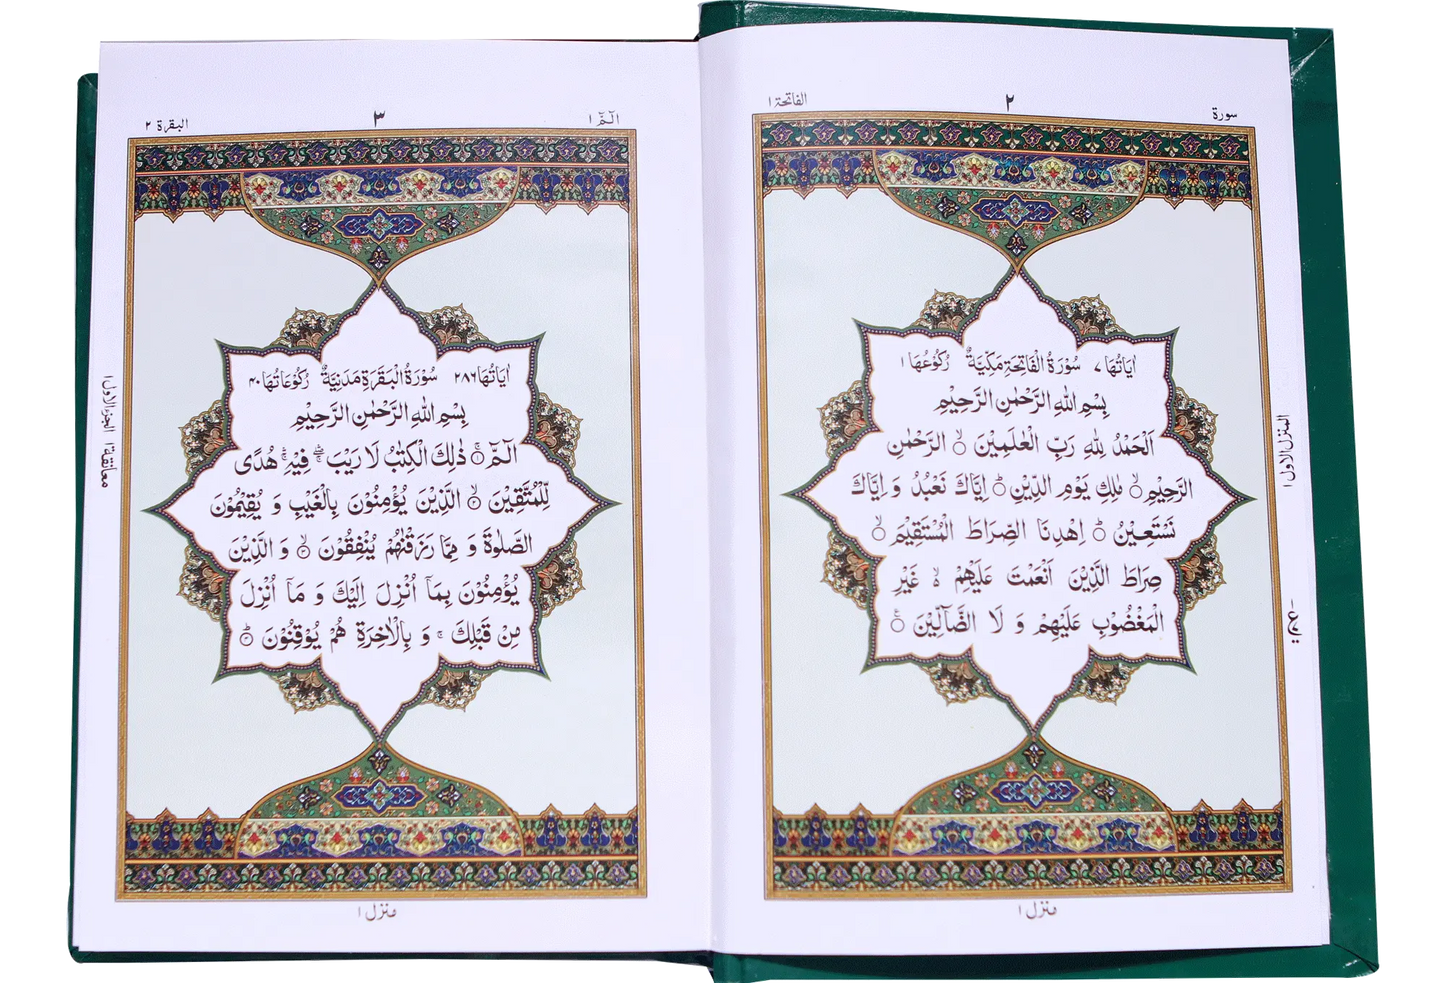 سورة
٢
الفاتحة ١
اٰيَاتُهَا ٧ سُوْرَةُ الْفَاتِحَةِ مَكِّيَّةٌ رُكُوْعُهَا ١
بِسْمِ اللّٰهِ الرَّحْمٰنِ الرَّحِيْمِ
اَلْحَمْدُ لِلّٰهِ رَبِّ الْعٰلَمِيْنَ ۙ الرَّحْمٰنِ
الرَّحِيْمِ ۙ مٰلِكِ يَوْمِ الدِّيْنِ ؕ اِيَّاكَ نَعْبُدُ وَ اِيَّاكَ
نَسْتَعِيْنُ ؕ اِهْدِنَا الصِّرَاطَ الْمُسْتَقِيْمَ ۙ
صِرَاطَ الَّذِيْنَ اَنْعَمْتَ عَلَيْهِمْ ۙ غَيْرِ
الْمَغْضُوْبِ عَلَيْهِمْ وَ لَا الضَّآلِّيْنَ
المنزل الاول ١
منزل ١
الٓمّٓ ١
٣
البقرة ٢
اٰيَاتُهَا ٢٨٦ سُوْرَةُ الْبَقَرَةِ مَدَنِيَّةٌ رُكُوْعَاتُهَا ٤٠
بِسْمِ اللّٰهِ الرَّحْمٰنِ الرَّحِيْمِ
الٓمّٓ ۚ ذٰلِكَ الْكِتٰبُ لَا رَيْبَ ۛۖ فِيْهِ ۛۚ هُدًى
لِّلْمُتَّقِيْنَ ۙ الَّذِيْنَ يُؤْمِنُوْنَ بِالْغَيْبِ وَ يُقِيْمُوْنَ
الصَّلٰوةَ وَ مِمَّا رَزَقْنٰهُمْ يُنْفِقُوْنَ ۙ وَ الَّذِيْنَ
يُؤْمِنُوْنَ بِمَاۤ اُنْزِلَ اِلَيْكَ وَ مَاۤ اُنْزِلَ
مِنْ قَبْلِكَ ۚ وَ بِالْاٰخِرَةِ هُمْ يُوْقِنُوْنَ ؕ
معانقة ١ الجزء الاول ١
منزل ١